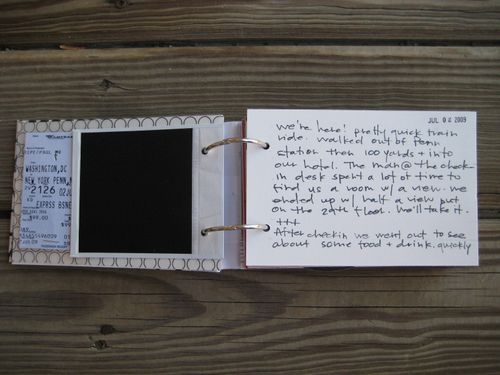 WASHINGTON, DC
NEW YORK PENN, N
2126 02JU
EXPRSS BSNE
$99.00
JUL 02 2009
we're here! pretty quick train
ride. walked out of penn
station then 100 yards + into
our hotel. The man @ the check-
in desk spent a lot of time to
find us a room w/ a view. we
ended up w/ half a view but
on the 20th floor. We'll take it.
+++
After checkin we went out to see
about some food + drink. quickly